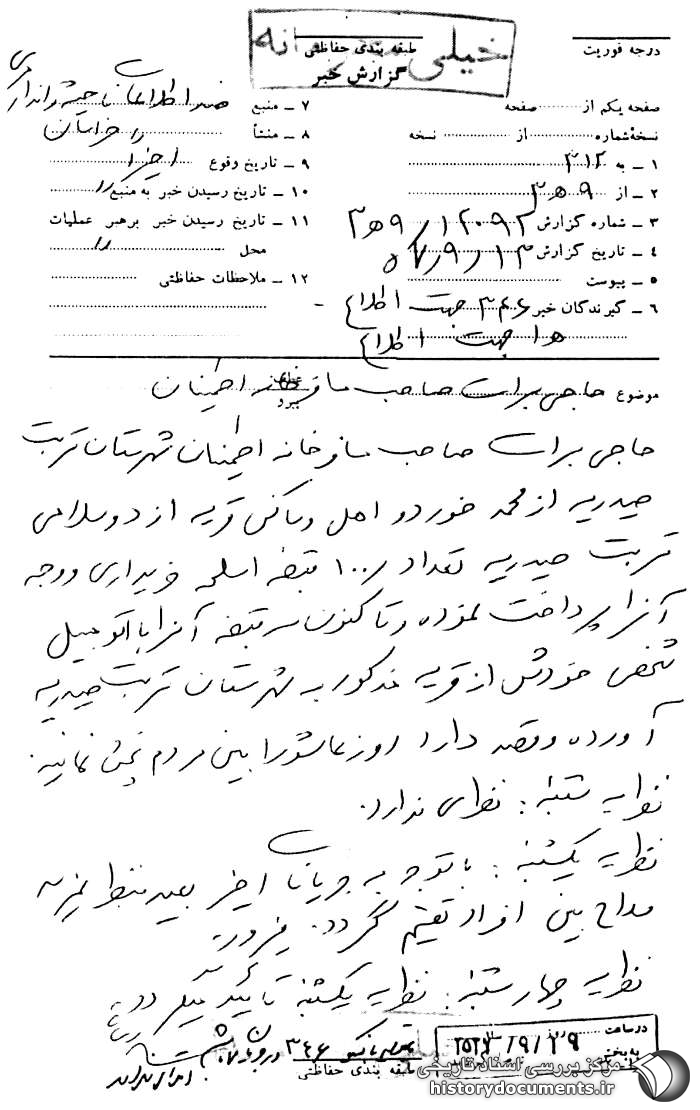 خیلی محرمانه
طبقه بندی حفاظتی
گزارش خبر
درجه فوریت
صفحه یکم از صفحه
نسخه شماره از نسخه
۱ ـ به ۳۱۲
۲ ـ از ۹ ه‍ ۳
۳ ـ شماره گزارش ۱۲۰۹۲ / ۹ ه‍ ۳
۴ ـ تاریخ گزارش ۱۳ / ۹ / ۵۷
۵ ـ پیوست
۶ ـ گیرندگان خبر ۳۴۶ جهت اطلاع
ه‍ ۱ جهت اطلاع
۷ ـ منبع ضد اطلاعات ناحیه ژاندارمری
۸ ـ منشأ خراسان
۹ ـ تاریخ وقوع اخیرا
۱۰ ـ تاریخ رسیدن خبر به منبع //
۱۱ ـ تاریخ رسیدن خبر برهبر عملیات
محل //
۱۲ ـ ملاحظات حفاظتی
موضوع حاجی برات صاحب مسافرخانه اطمینان
حاجی برات صاحب مسافرخانه اطمینان شهرستان تربت
حیدریه از محمد خوردو اهل و ساکن قریه ازدوسلامی
تربت حیدریه تعداد ۱۰۰ قبضه اسلحه خریداری و وجه
آنرا پرداخت نموده و تاکنون سه قبضه آنرا با اتومبیل
شخصی خودش از قریه مذکور به شهرستان تربت حیدریه
آورده و قصد دارد روز عاشورا بین مردم پخش نماید.
نظریه شنبه : نظری ندارد.
نظریه یکشنبه : با توجه به جریانات اخیر بعید بنظر نمیرسد
سلاح بین افراد تقسیم گردد.
نظریه چهارشنبه : نظریه یکشنبه تأیید میگردد.
در ساعت روز
۲۵۳۷/۹/۱۹
به بخش
۳۴۶
طبقه بندی حفاظتی
مرکز بررسی اسناد تاریخی
historydocuments.ir